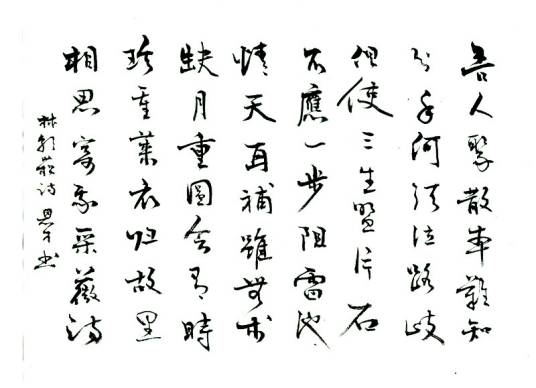 吾人聚散事難知
分手何須泣路歧
但使三生盟片石
不應一步阻雷池
情天再補雖無術
缺月重圓會有時
珍重萊衣歸故里
相思寄我采薇詩
林朝崧詩 書